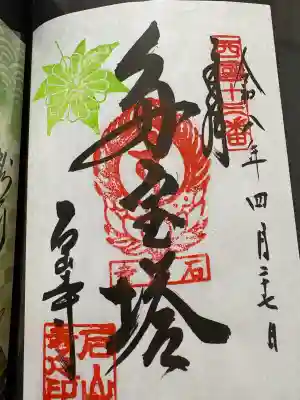 西國十三番
奉拝
令和八年四月二十七日
多宝塔
石山寺
石山寺印